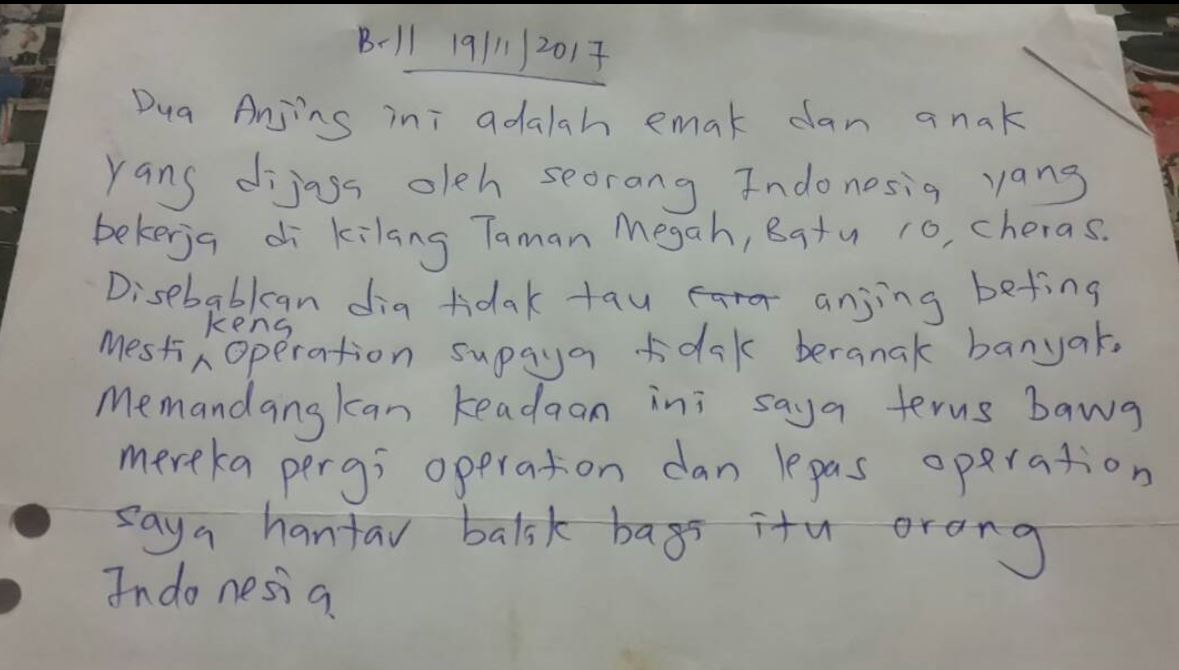 Bill 19/11/2017
Dua Anjing ini adalah emak dan anak
yang dijaga oleh seorang Indonesia yang
bekerja di kilang Taman Megah, Batu 10, cheras.
Disebabkan dia tidak tau cara anjing betina
Mesti kena operation supaya tidak beranak banyak.
Memandangkan keadaan ini saya terus bawa
mereka pergi operation dan lepas operation
saya hantar balik bagi itu orang
Indonesia